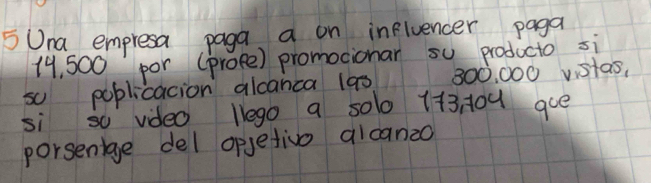 5 Una empresa paga a un influencer paga
14,500 por (profe) promocionar su producto si
su poplicacion alcanca las 300.000 vistas,
si su video llego a solo 173,704 que
porsentage del opjetivo alcanzo